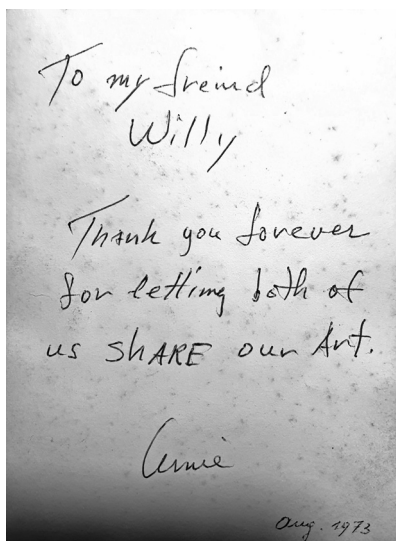 To my freind
Willy
Thank you forever
for letting both of
us SHARE our Art.
Annie
Aug. 1973